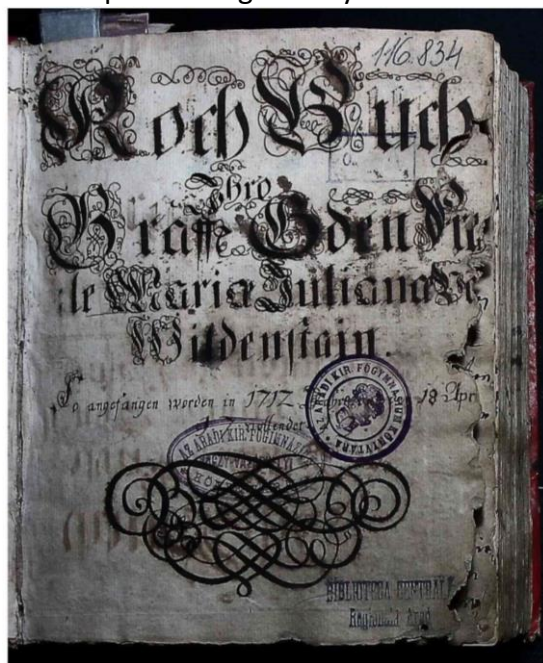 116.834
Koch Buch
Ihro
Gräffe Gden
le Maria Juliana
Wildenstain.
So angefangen worden in 1712 18 Apr
vollendet
AZ ARADI KIR. FŐGYMNASIUM KÖNYVTÁRA
AZ ARADI KIR. FŐGIMNÁZIUM
BIBLIOTECA CENTRALĂ
Regională Arad